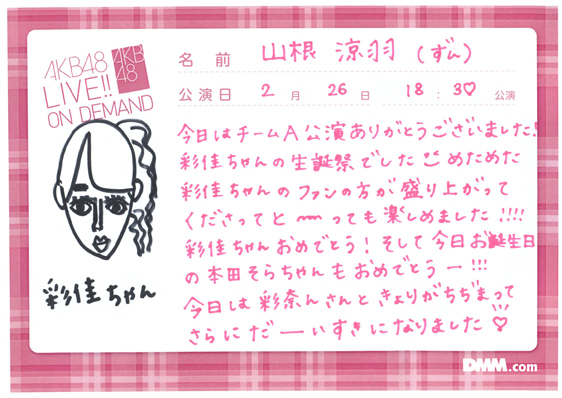 AKB48
LIVE!!
ON DEMAND
AKB
48
名前 山根 涼羽 (ずん)
公演日 2月 26日 18:30 公演
今日はチームA公演ありがとうございました!
彩佳ちゃんの生誕祭でした めためた
彩佳ちゃんのファンの方が盛り上がって
くださってと〜っても楽しめました!!!!
彩佳ちゃんおめでとう!そして今日お誕生日
の本田そらちゃんもおめでとうー!!!
今日は彩奈んさんときょりがちぢまって
さらにだーいすきになりました♡
彩佳ちゃん
DMM.com